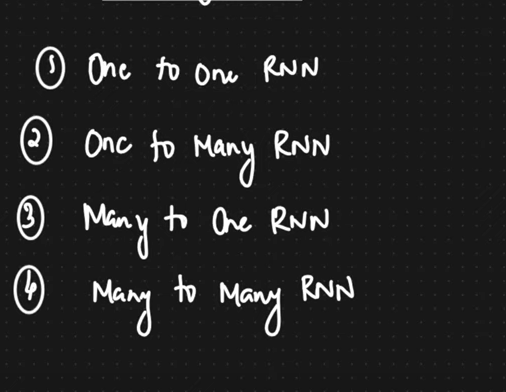 ① One to One RNN
② One to Many RNN
③ Many to One RNN
④ Many to Many RNN